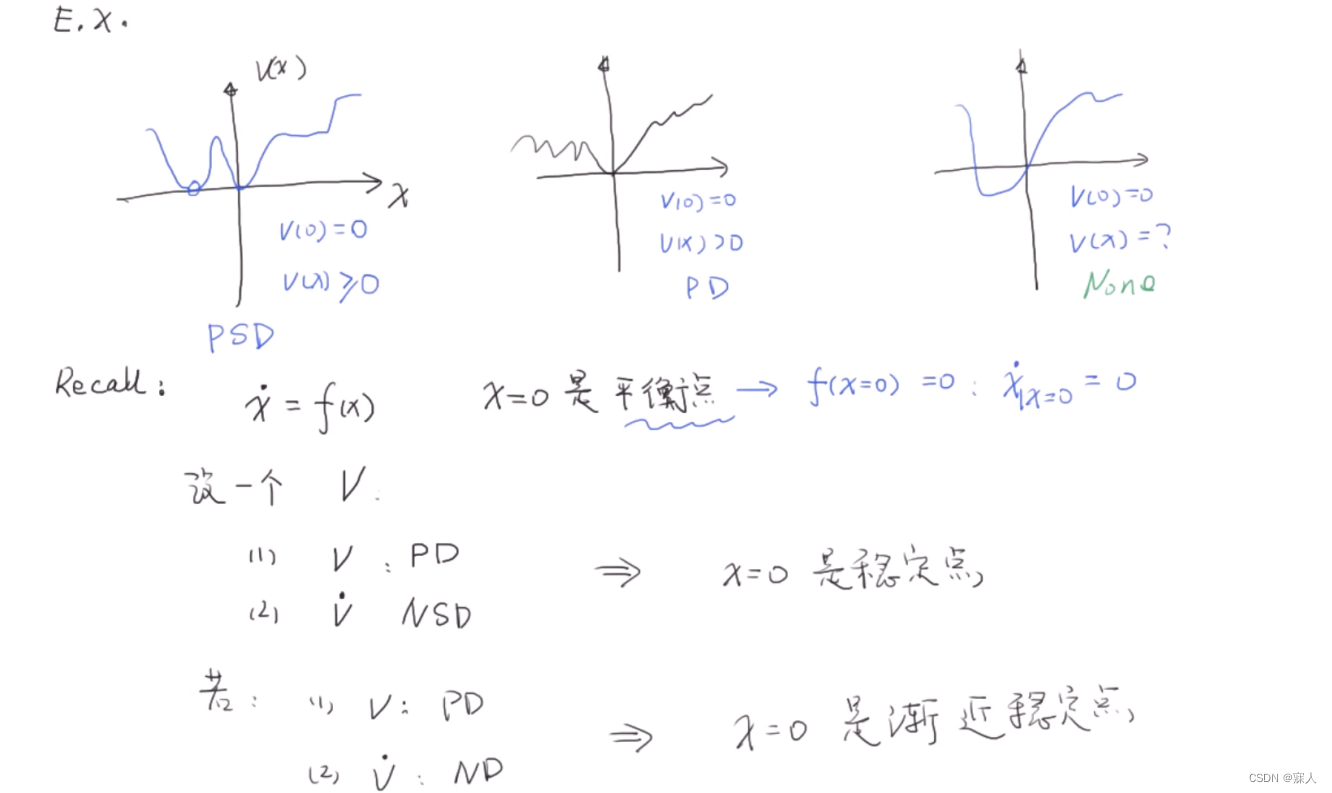 E.X.
V(x)
x
V(0)=0
V(x)≥0
PSD
V(0)=0
V(x)>0
PD
V(0)=0
V(x)=?
None
Recall: ẋ = f(x) x=0 是平衡点 → f(x=0) =0 : ẋ|x=0 = 0
设一个 V.
(1) V : PD ⇒ x=0 是稳定点
(2) V̇ NSD
若: (1) V: PD ⇒ x=0 是渐近稳定点
(2) V̇ : ND
CSDN @寐人